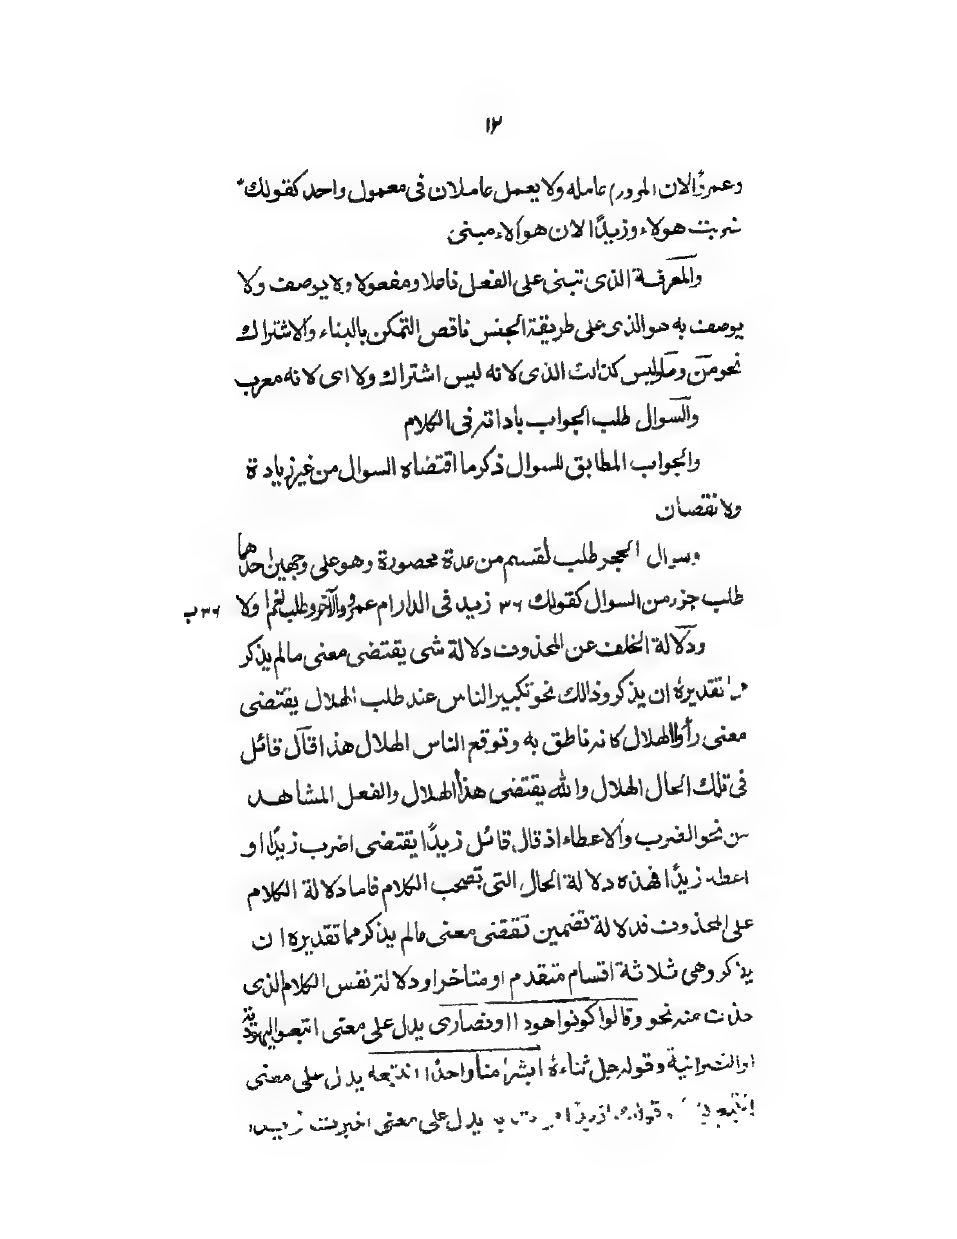 ١٢
وعمرؤالان المرور) عامله ولا يعمل عاملان فى معمول واحد كقولك
ضربت هولاء وزيدًا لان هوالاء مبنى
والمعرفة الذى تبنى على الفعل فاعلا ومفعولا ولا يوصف ولا
يوصف به هو الذى على طريقة الجنس ناقص التمكن بالبناء والاشتراك
نحو من وما وليس كذالك الذى لانه ليس اشتراك ولا اى لانه معرب
والسوال طلب الجواب باداته فى الكلام
والجواب المطابق للسوال ذكر ما اقتضاه السوال من غير زيادة
ولا نقصان
وسوال الحجر طلب لقسم من عدة محصورة وهو على وجهين احدهما
طلب جزء من السوال كقولك ٣٦ زيد فى الدار ام عمرو والآخر وطلب اولا ٣٦ب
ودلالة الخلف عن المحذوف دلالة شى يقتضى معنى مالم يذكر
تقديره ان يذكر وذالك نحو تكبير الناس عند طلب الهلال يقتضى
معنى رأوا الهلال كانه ناطق به وتوقع الناس الهلال هذا قال قائل
فى تلك الحال الهلال والله يقتضى هذا الهلال والفعل المشاهد
من نحو الضرب والاعطاء اذ قال قائل زيدًا يقتضى اضرب زيدًا او
اعطه زيدًا فهذه دلالة الحال التى تصحب الكلام فاما دلالة الكلام
على المحذوف فدلالة تضمين تقتضى معنى مالم يذكر مما تقديره ان
يذكر وهى ثلاثة اقسام متقدم او متاخر او دلالة نفس الكلام الذى
حذف منه نحو وقالوا كونوا هودا او نصارى يدل على معنى اتبعوا اليهودية
او النصرانية وقوله جل ثناءه أبشرًا منا واحدًا نتبعه يدل على معنى
يدل على معنى اخبرت زيدا